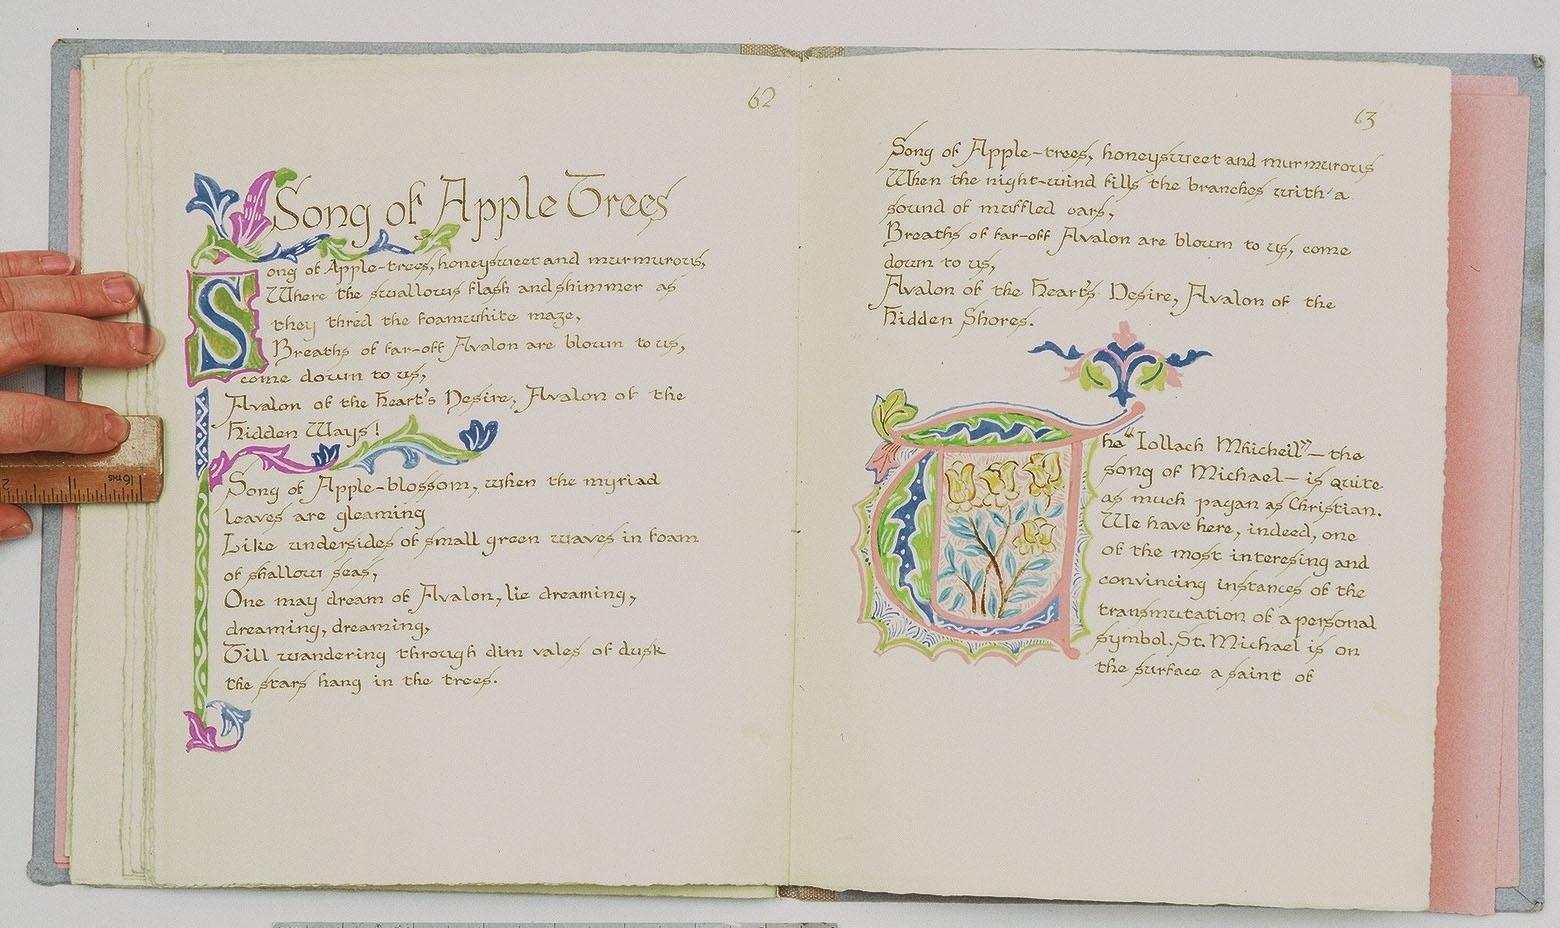 62
Song of Apple Trees
Song of Apple-trees, honeysweet and murmurous,
Where the swallows flash and shimmer as
they thred the foamwhite maze,
Breaths of far-off Avalon are blown to us,
come down to us,
Avalon of the Heart's Desire, Avalon of the
Hidden Ways!
Song of Apple-blossom, when the myriad
leaves are gleaming
Like undersides of small green waves in foam
of shallow seas,
One may dream of Avalon, lie dreaming,
dreaming, dreaming,
Till wandering through dim vales of dusk
the stars hang in the trees.
63
Song of Apple-trees, honeysweet and murmurous
When the night-wind fills the branches with a
sound of muffled oars,
Breaths of far-off Avalon are blown to us, come
down to us,
Avalon of the Heart's Desire, Avalon of the
Hidden Shores.
The "Iollach Mhicheil" — the
song of Michael — is quite
as much pagan as Christian.
We have here, indeed, one
of the most interesing and
convincing instances of the
transmutation of a personal
symbol. St. Michael is on
the surface a saint of
2 1 16THS